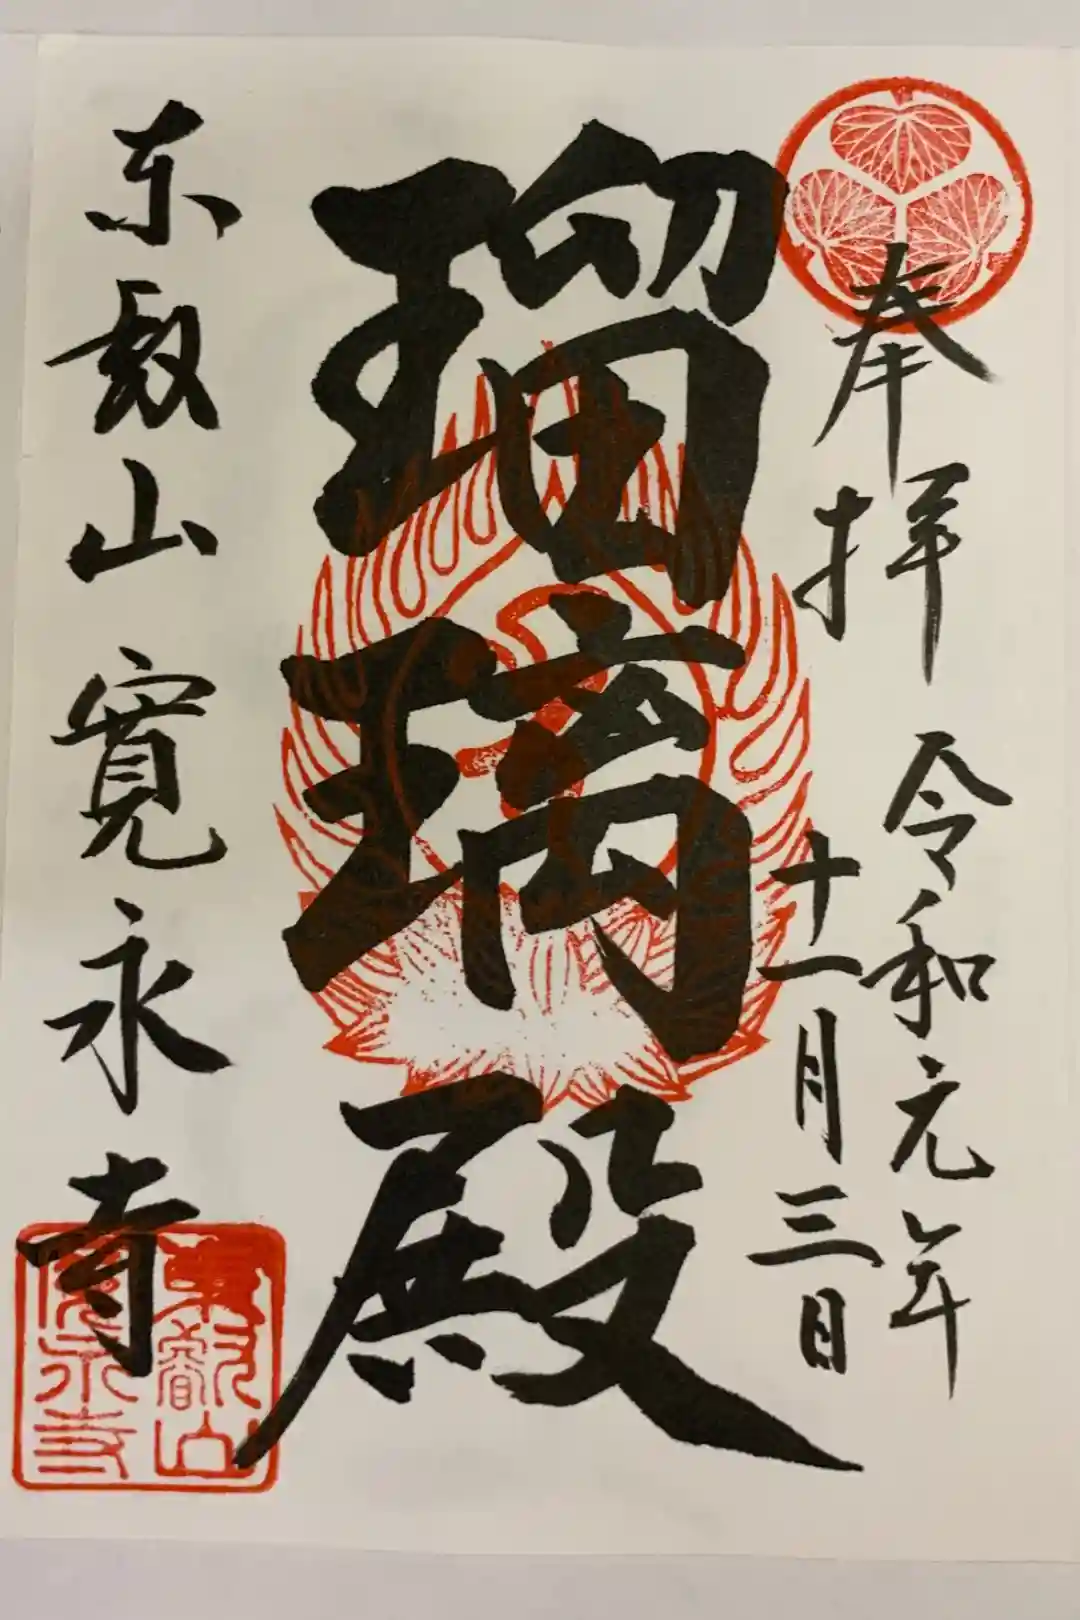 奉拝
令和元年
十一月三日
瑠璃殿
东叡山寛永寺
東叡山
寛永寺